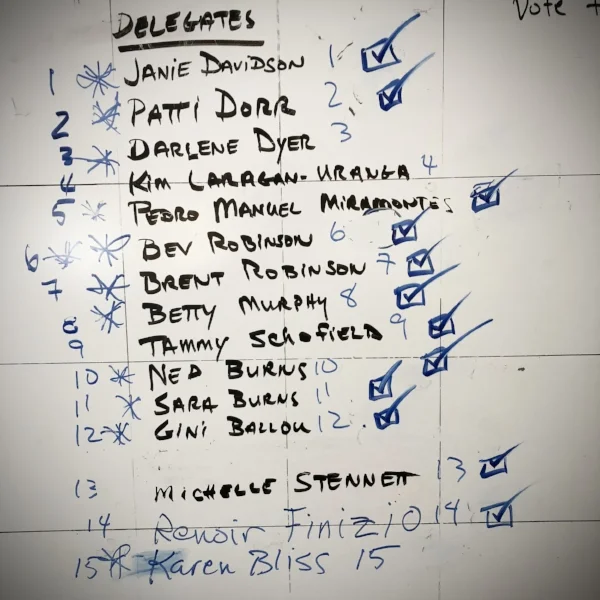 Vote
DELEGATES
1 * JANIE DAVIDSON 1 ☑
2 * PATTI DORR 2 ☑
3 * DARLENE DYER 3
4 KIM LARAGAN-URANGA 4
5 * PEDRO MANUEL MIRAMONTES ☑
6 * * BEV ROBINSON 6 ☑
7 * BRENT ROBINSON 7 ☑
8 * BETTY MURPHY 8 ☑
9 TAMMY SCHOFIELD 9 ☑
10 * NED BURNS 10 ☑
11 * SARA BURNS 11 ☑
12 * GINI BALLOU 12 ☑
13 MICHELLE STENNETT 13 ☑
14 Renoir Finizio 14 ☑
15 * Karen Bliss 15